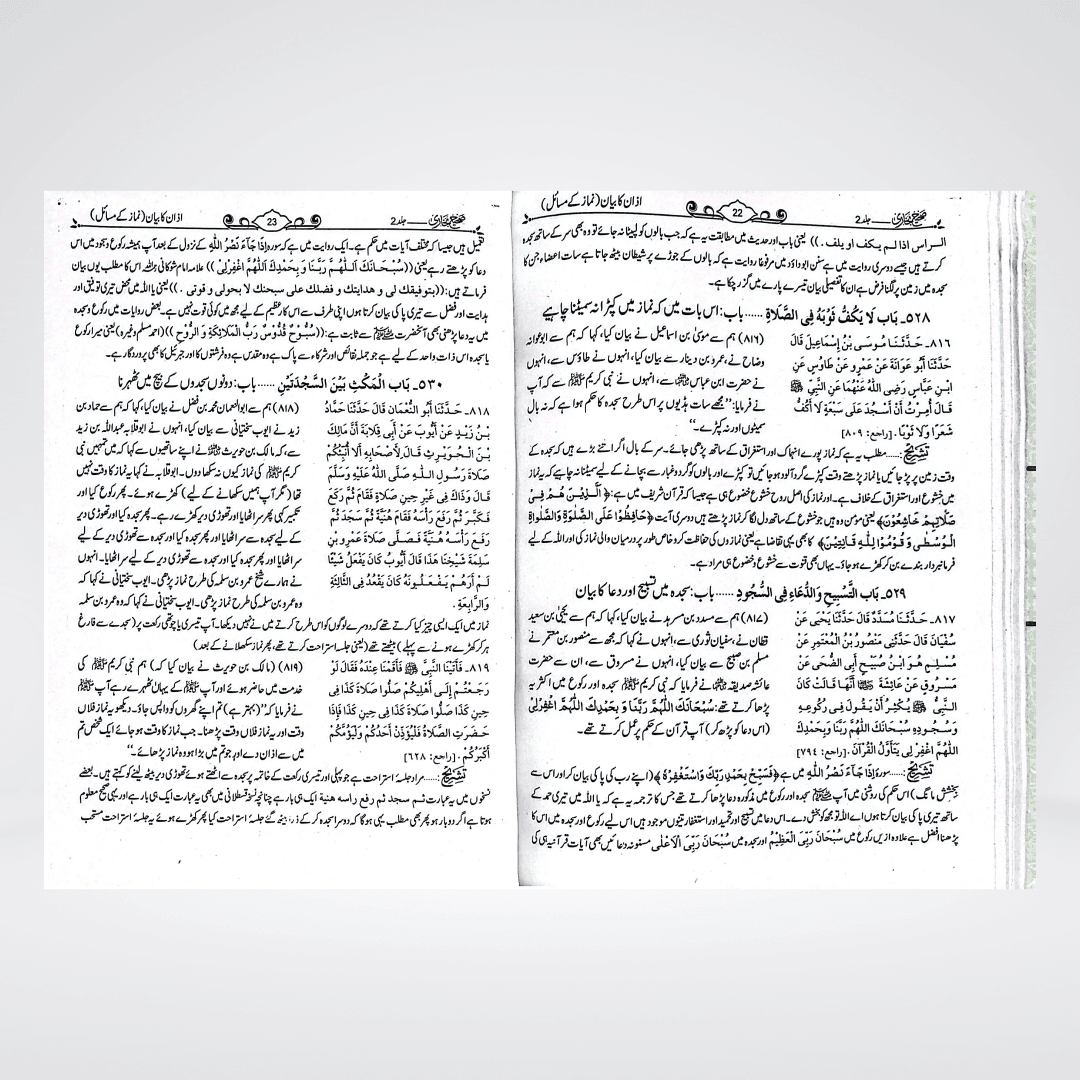 صحیح بخاری ـــ جلد 2
22
اذان کا بیان (نماز کے مسائل)
الراس اذا لم یکف او یلف .)) یعنی باب اور حدیث میں مطابقت یہ ہے کہ جب بالوں کو لپیٹا نہ جائے تو وہ بھی سر کے ساتھ سجدہ
کرتے ہیں جیسے دوسری روایت میں ہے سنن ابوداؤد میں مرفوعاً روایت ہے کہ بالوں کے جوڑے پر شیطان بیٹھ جاتا ہے سات اعضاء جن کا
سجدہ میں زمین پر لگنا فرض ہے ان کا تفصیلی بیان تیسرے پارے میں گزر چکا ہے۔
۵۲۸۔ بَابٌ لَا يَكُفُّ ثَوْبَهُ فِي الصَّلَاةِ ...... باب: اس بات میں کہ نماز میں کپڑا نہ سمیٹنا چاہیے
۸۱۶۔ حَدَّثَنَا مُوسَى بْنُ إِسْمَاعِيلَ قَالَ
حَدَّثَنَا أَبُو عَوَانَةَ عَنْ عَمْرٍو عَنْ طَاوُسٍ عَنِ
ابْنِ عَبَّاسٍ رَضِيَ اللَّهُ عَنْهُمَا عَنِ النَّبِيِّ ﷺ
قَالَ أُمِرْتُ أَنْ أَسْجُدَ عَلَى سَبْعَةٍ لَا أَكُفُّ
شَعَرًا وَلَا ثَوْبًا . [راجع: ۸۰۹]
(۸۱۶) ہم سے موسیٰ بن اسماعیل نے بیان کیا، کہا کہ ہم سے ابوعوانہ
وضاح نے، عمرو بن دینار سے بیان کیا، انہوں نے طاؤس سے، انہوں
نے حضرت ابن عباس سے، انہوں نے نبی کریم ﷺ سے کہ آپ
نے فرمایا: ’’مجھے سات ہڈیوں پر اس طرح سجدہ کا حکم ہوا ہے کہ نہ بال
سمیٹوں اور نہ کپڑے۔‘‘
تشریح: ...... مطلب یہ ہے کہ نماز پورے انہماک اور استغراق کے ساتھ پڑھی جائے۔ سر کے بال اگر اتنے بڑے ہیں کہ سجدہ کے
وقت زمین پر پڑ جائیں یا نماز پڑھتے وقت کپڑے گرد آلود ہو جائیں تو کپڑے اور بالوں کو گرد و غبار سے بچانے کے لیے سمیٹنا نہ چاہیے کہ یہ نماز
میں خشوع اور استغراق کے خلاف ہے۔ اور نماز کی اصل روح خشوع خضوع ہی ہے جیسا کہ قرآن شریف میں ہے: ﴿الَّذِيْنَ هُمْ فِيْ
صَلَاتِهِمْ خَاشِعُوْنَ﴾ یعنی مومن وہ ہیں جو خشوع کے ساتھ دل لگا کر نماز پڑھتے ہیں دوسری آیت ﴿حَافِظُوْا عَلَى الصَّلَوٰةِ وَالصَّلوٰةِ
الْوُسْطٰى وَقُوْمُوْا لِلّٰهِ قَانِتِيْنَ﴾ کا بھی یہی تقاضا ہے یعنی نمازوں کی حفاظت کرو خاص طور پر درمیان والی نماز کی اور اللہ کے لیے
فرمانبردار بندے بن کر کھڑے ہو جاؤ۔ یہاں بھی قنوت سے خشوع و خضوع ہی مراد ہے۔
۵۲۹۔ بَابُ التَّسْبِيحِ وَالدُّعَاءِ فِي السُّجُودِ ...... باب: سجدہ میں تسبیح اور دعا کا بیان
۸۱۷۔ حَدَّثَنَا مُسَدَّدٌ قَالَ حَدَّثَنَا يَحْيَى عَنْ
سُفْيَانَ قَالَ حَدَّثَنِي مَنْصُورُ بْنُ الْمُعْتَمِرِ عَنْ
مُسْلِمٍ هُوَ ابْنُ صُبَيْحٍ أَبِي الضُّحَى عَنْ
مَسْرُوقٍ عَنْ عَائِشَةَ أَنَّهَا قَالَتْ كَانَ
النَّبِيُّ ﷺ يُكْثِرُ أَنْ يَقُولَ فِي رُكُوعِهِ
وَسُجُودِهِ سُبْحَانَكَ اللَّهُمَّ رَبَّنَا وَبِحَمْدِكَ
اللَّهُمَّ اغْفِرْ لِي يَتَأَوَّلُ الْقُرْآنَ . [راجع: ۷۹۴]
(۸۱۷) ہم سے مسدد بن مسرہد نے بیان کیا، کہا کہ ہم سے یحییٰ بن سعید
قطان نے، سفیان ثوری سے، انہوں نے کہا کہ مجھ سے منصور بن معتمر نے
مسلم بن صبیح سے بیان کیا، انہوں نے مسروق سے، ان سے حضرت
عائشہ صدیقہ نے فرمایا کہ نبی کریم ﷺ سجدہ اور رکوع میں اکثر یہ
پڑھا کرتے تھے: سُبْحَانَكَ اللّٰهُمَّ رَبَّنَا وَ بِحَمْدِكَ اللّٰهُمَّ اغْفِرْلِيْ
(اس دعا کو پڑھ کر) آپ قرآن کے حکم پر عمل کرتے تھے۔
تشریح: ...... سورۂ اِذَا جَآءَ نَصْرُ اللّٰهِ میں ہے ﴿فَسَبِّحْ بِحَمْدِ رَبِّكَ وَاسْتَغْفِرْهُ﴾ (اپنے رب کی پاکی بیان کر اور اس سے
بخشش مانگ) اس حکم کی روشنی میں آپ ﷺ سجدہ اور رکوع میں مذکورہ دعا پڑھا کرتے تھے جس کا ترجمہ یہ ہے کہ یا اللہ میں تیری حمد کے
ساتھ تیری پاکی بیان کرتا ہوں اے اللہ تو مجھ کو بخش دے۔ اس دعا میں تسبیح اور تحمید اور استغفار تینوں موجود ہیں اس لیے رکوع اور سجدہ میں اس کا
پڑھنا افضل ہے علاوہ ازیں رکوع میں سُبْحَانَ رَبِّيَ الْعَظِيْمِ اور سجدہ میں سُبْحَانَ رَبِّيَ الْاَعْلٰى مسنونہ دعائیں بھی آیات قرآنیہ ہی کی
صحیح بخاری ـــ جلد 2
23
اذان کا بیان (نماز کے مسائل)
تعمیل ہیں جیسا کہ مختلف آیات میں حکم ہے۔ ایک روایت میں ہے کہ سورہ اِذَا جَآءَ نَصْرُ اللّٰهِ کے نزول کے بعد آپ ہمیشہ رکوع و سجود میں اس
دعا کو پڑھتے رہے یعنی ((سُبْحَانَكَ اَللّٰهُمَّ رَبَّنَا وَ بِحَمْدِكَ اَللّٰهُمَّ اغْفِرْلِيْ)) علامہ امام شوکانی اس کا مطلب یوں بیان
فرماتے ہیں: ((بتوفيقك لى و هدايتك و فضلك على سبحنك لا بحولى و قوتى .)) یعنی یا اللہ میں محض تیری توفیق اور
ہدایت اور فضل سے تیری پاکی بیان کرتا ہوں اپنی طرف سے اس کار عظیم کے لیے مجھ میں کوئی قوت نہیں ہے۔ بعض روایات میں رکوع و سجدہ
میں یہ دعا پڑھنی بھی آنحضرت ﷺ سے ثابت ہے: ((سُبُّوْحٌ قُدُّوْسٌ رَبُّ الْمَلَائِكَةِ وَ الرُّوْحِ)) (احمد مسلم وغیرہ) یعنی میرا رکوع
یا سجدہ اس ذات واحد کے لیے ہے جو جملہ نقائص اور شرکاء سے پاک ہے وہ مقدس ہے وہ فرشتوں کا اور جبرئیل کا بھی پروردگار ہے۔
۵۳۰۔ بَابُ الْمُكْثِ بَيْنَ السَّجْدَتَيْنِ ...... باب: دونوں سجدوں کے بیچ میں ٹھہرنا
۸۱۸۔ حَدَّثَنَا أَبُو النُّعْمَانِ قَالَ حَدَّثَنَا حَمَّادُ
بْنُ زَيْدٍ عَنْ أَيُّوبَ عَنْ أَبِي قِلَابَةَ أَنَّ مَالِكَ
بْنَ الْحُوَيْرِثِ قَالَ لِأَصْحَابِهِ أَلَا أُنَبِّئُكُمْ
صَلَاةَ رَسُولِ اللَّهِ صَلَّى اللَّهُ عَلَيْهِ وَسَلَّمَ
قَالَ وَذَاكَ فِي غَيْرِ حِينِ صَلَاةٍ فَقَامَ ثُمَّ رَكَعَ
فَكَبَّرَ ثُمَّ رَفَعَ رَأْسَهُ فَقَامَ هُنَيَّةً ثُمَّ سَجَدَ ثُمَّ
رَفَعَ رَأْسَهُ هُنَيَّةً فَصَلَّى صَلَاةَ عَمْرِو بْنِ
سَلِمَةَ شَيْخِنَا هَذَا قَالَ أَيُّوبُ كَانَ يَفْعَلُ شَيْئًا
لَمْ أَرَهُمْ يَفْعَلُونَهُ كَانَ يَقْعُدُ فِي الثَّالِثَةِ
وَالرَّابِعَةِ .
(۸۱۸) ہم سے ابوالنعمان محمد بن فضل نے بیان کیا، کہا کہ ہم سے حماد بن
زید نے ایوب سختیانی سے بیان کیا، انہوں نے ابوقلابہ عبداللہ بن زید
سے، کہ مالک بن حویرث نے اپنے ساتھیوں سے کہا کہ میں تمہیں نبی
کریم ﷺ کی نماز کیوں نہ سکھا دوں۔ ابوقلابہ نے کہا یہ نماز کا وقت نہیں
تھا (مگر آپ ہمیں سکھانے کے لیے) کھڑے ہوئے۔ پھر رکوع کیا اور
تکبیر کہی پھر سر اٹھایا اور تھوڑی دیر کھڑے رہے۔ پھر سجدہ کیا اور تھوڑی دیر
کے لیے سجدہ سے سر اٹھایا اور پھر سجدہ کیا اور سجدہ سے تھوڑی دیر کے لیے
سر اٹھایا اور سجدہ کیا اور سجدہ سے تھوڑی دیر کے لیے سر اٹھایا۔ انہوں
نے ہمارے شیخ عمرو بن سلمہ کی طرح نماز پڑھی۔ ایوب سختیانی نے کہا کہ
وہ عمرو بن سلمہ کی طرح نماز پڑھی۔ ایوب سختیانی نے کہا کہ وہ عمرو بن سلمہ
نماز میں ایک ایسی چیز کیا کرتے تھے کہ دوسرے لوگوں کو اس طرح کرتے میں نے نہیں دیکھا۔ آپ تیسری یا چوتھی رکعت پر (سجدہ سے فارغ
ہو کر کھڑے ہونے سے پہلے) بیٹھتے تھے (یعنی جلسۂ استراحت کرتے تھے، پھر نماز سکھلانے کے بعد)
۸۱۹۔ فَأَتَيْنَا النَّبِيَّ ﷺ فَأَقَمْنَا عِنْدَهُ فَقَالَ لَوْ
رَجَعْتُمْ إِلَى أَهْلِيكُمْ صَلُّوا صَلَاةَ كَذَا فِي
حِينِ كَذَا صَلُّوا صَلَاةَ كَذَا فِي حِينِ كَذَا فَإِذَا
حَضَرَتِ الصَّلَاةُ فَلْيُؤَذِّنْ أَحَدُكُمْ وَلْيَؤُمَّكُمْ
أَكْبَرُكُمْ . [راجع: ۶۲۸]
(۸۱۹) (مالک بن حویرث نے بیان کیا کہ) ہم نبی کریم ﷺ کی
خدمت میں حاضر ہوئے اور آپ ﷺ کے یہاں ٹھہرے رہے آپ ﷺ
نے فرمایا کہ ’’(بہتر ہے) تم اپنے گھروں کو واپس جاؤ۔ دیکھو یہ نماز فلاں
وقت اور یہ نماز فلاں وقت پڑھنا۔ جب نماز کا وقت ہو جائے ایک شخص تم
میں سے اذان دے اور جو تم میں بڑا ہو وہ نماز پڑھائے۔‘‘
تشریح: ...... مراد جلسۂ استراحت ہے جو پہلی اور تیسری رکعت کے خاتمہ پر سجدہ سے اٹھتے ہوئے تھوڑی دیر بیٹھ لینے کو کہتے ہیں۔ بعض
نسخوں میں یہ عبارت ثم سجد ثم رفع راسه هنية ایک ہی بار ہے چنانچہ نسخہ قسطلانی میں بھی یہ عبارت ایک ہی بار ہے اور یہی صحیح معلوم
ہوتا ہے اگر دو بار ہو پھر بھی مطلب یہی ہوگا کہ دوسرا سجدہ کر کے ذرا بیٹھ گئے جلسۂ استراحت کیا پھر کھڑے ہوئے یہ جلسۂ استراحت مستحب